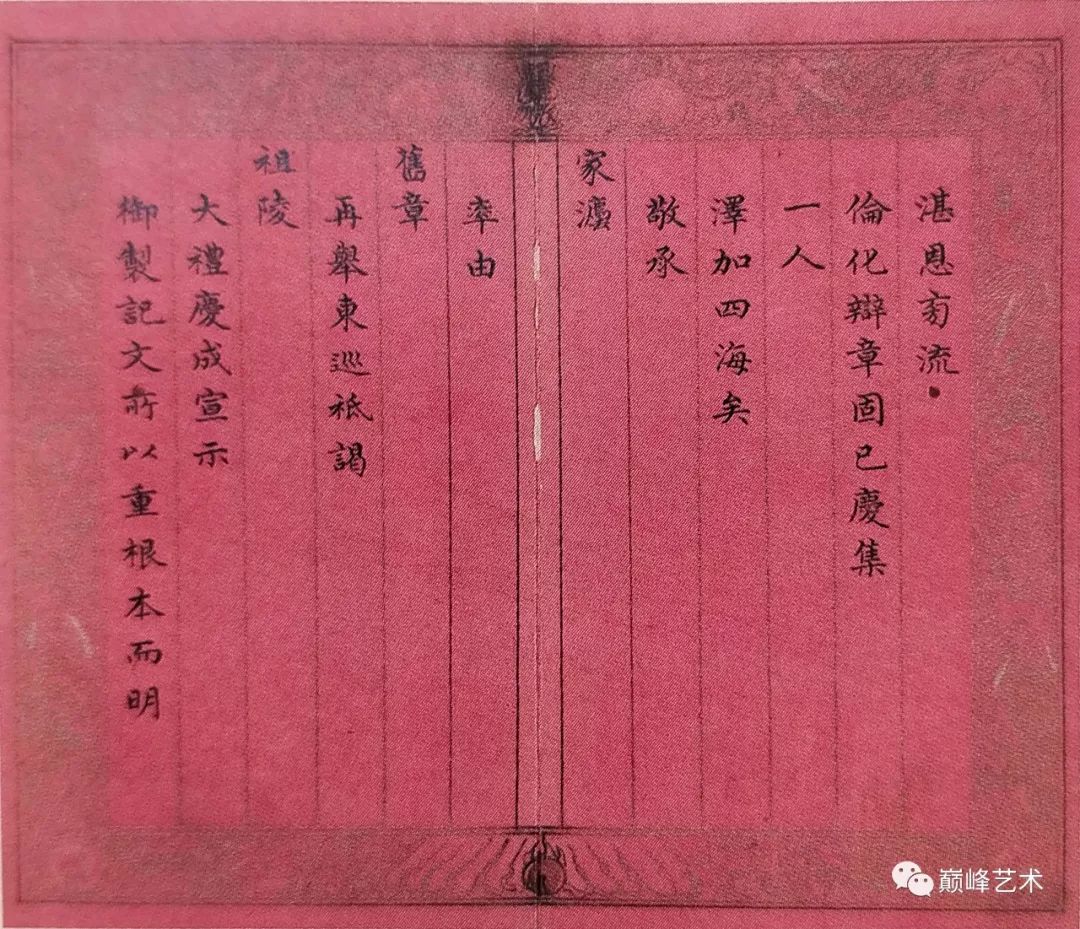 湛恩旁流
倫化辯章固已慶集
一人
澤加四海矣
敬承
家灋
率由
舊章
再舉東巡祗謁
祖陵
大禮慶成宣示
御製記文所以重根本而明
巅峰艺术